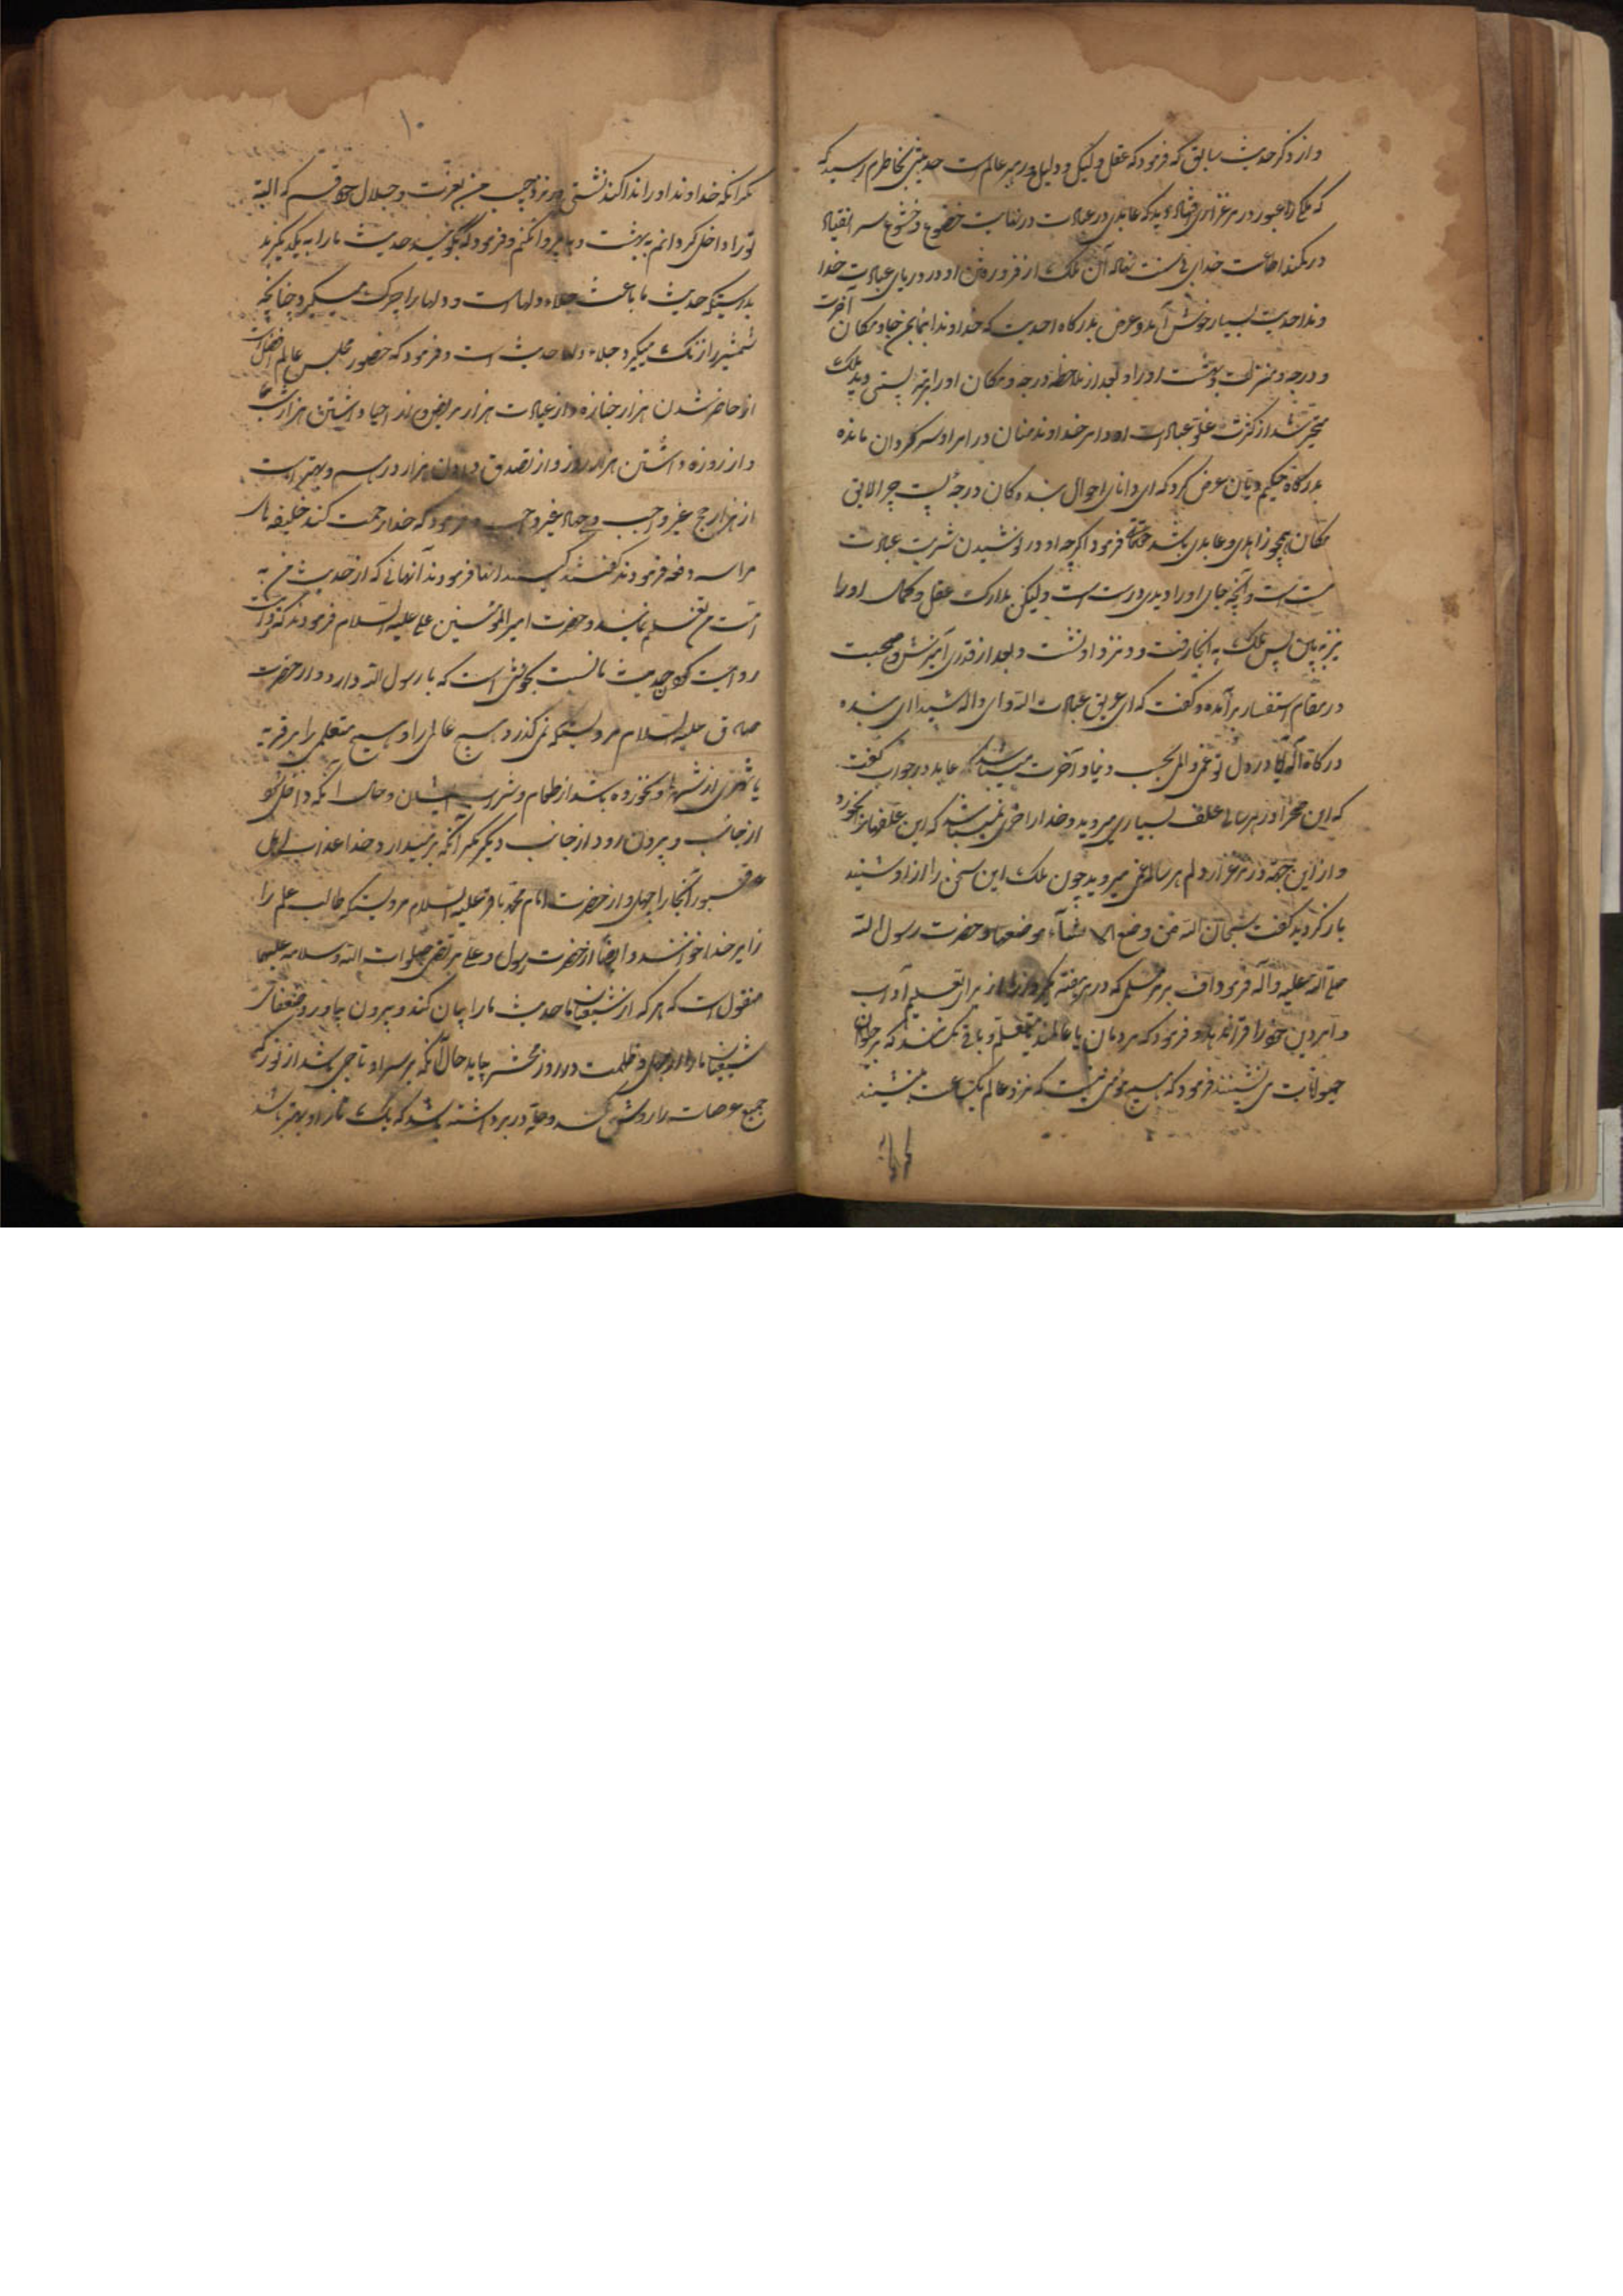 و از ذکر حدیث سابق که فرمود که عقل وکیل و دلیل و رهبر عالم است حدیثی بخاطرم رسید که
که ملکی را عبور در مرغزاری افتاد دید که عابدی در عبادت در نهایت خضوع و خشوع سر انقیاد
در کمند اطاعت خدای نهاده آن ملک از فرو رفتن او در دریای عبادت خدا
وند احدیت بسیار خوش آمد و عرض بدرکاه احدیت که خداوندا بنمای بمن جا و مکان آخرت
و درجه و منزلت بهشت او را و بعد از ملاحظه درجه و مکان او را بمرتبه پستی دید ملک
متحیر شد از کثرت غلو عبادت او و امر خداوند منان در امر او سر کردان مانده
بدرکاه حکیم دیان عرض کرد که ای دانای احوال بنده کان درجه پست چرا لایق
مکان همچو زاهدی و عابدی باشد حقتعالی فرمود اکرچه او در نوشیدن شربت عبادت
مست است و آنچه جای او را دیدی درست است ولیکن بدارک عقل و کمال او را
نیز به بین پس ملک به آنجا رفت و در نزد او نشست و بعد از قدری آمیزش و صحبت
در مقام استفسار برآمده و کفت که ای غریق عبادت الله و ای واله شیدای بنده
درکاه اله آیا در دل تو غم و المی بحسب دنیا و آخرت میباشد عابد در جواب کفت
که این صحرا در هر سالی علف بسیاری میروید و خدا را خری نمیباشد که این علفها را بخورد
و از این جهة در مرغزار دلم هر ساله غمی میروید چون ملک این سخن را از او شنید
باز کردید کفت سبحان الله من وضع الاشیاء موضعها و حضرت رسول الله
صلی الله علیه و آله فرمود اف بر هر مسلمی که در هر هفته یکروز را از برای تعلیم آداب
و امر دین خود را قرار ندهد و فرمود که مردمان یا عالمند یا متعلم و باقی مکسانند که بر حیوان
حیوانات می نشینند فرمود که هیچ مؤمنی نیست که نزد عالم یکساعت بنشیند
۱۰
مکر آنکه خداوند او را ندا کند نشستی در نزد حبیب من بعزت و جلال خود قسم که البته
تو را داخل کردانم به بهشت و پروا نکنم و فرمود که بکوئید حدیث ما را به یکدیکر
بدرستیکه حدیث ما باعث جلاء دلهاست و دلها را چرک میکیرد چنانچه
شمشیر را زنک میکیرد و جلاء دلها حدیث است و فرمود که حضور مجلس عالم افضل است
از حاضر شدن هزار جنازه و از عیادت هزار مریض و از احیا داشتن هزار شب
و از روزه داشتن هزار روز و از تصدق دادن هزار درهم و بهتر است
از هزار حج غیر واجب و جهاد غیر واجب و فرمود که خدا رحمت کند خلیفه های
مرا سه دفعه فرمودند کفتند کیستند انها فرمودند آنهائی که از حدیث من به
امت من تعلیم نمایند و حضرت امیر المؤمنین علی علیه السلام فرمودند که
روایت کردن حدیث ما که با رسول الله دارد و از حضرت
صادق علیه السلام مرویست که نمی کذرد هیچ عالمی را و هیچ متعلمی را بر قریه
یا شهری از شهرها و نخورده باشد از طعام و شرب ایشان و حال آنکه داخل شود
از جانب و بیرون رود از جانب دیکر مکر آنکه بر میدارد خدا عذاب اهل
قبور آنجا را و از حضرت امام محمد باقر علیه السلام مرویست که طالب علم را
زایر خدا خوانند و ایضا از حضرت رسول و علی مرتضی صلوات الله و سلامه علیهما
منقول است که هر که از شیعیان ما حدیث ما را بیان کند و بیرون بیاورد ضعفای
شیعیان ما را از جهل و ظلمت در روز محشر بیاید حال آنکه بر سر او تاجی باشد از نور که
جمیع عرصات را روشن کند و حله در بر داشته باشد که یک تار او بهتر باشد